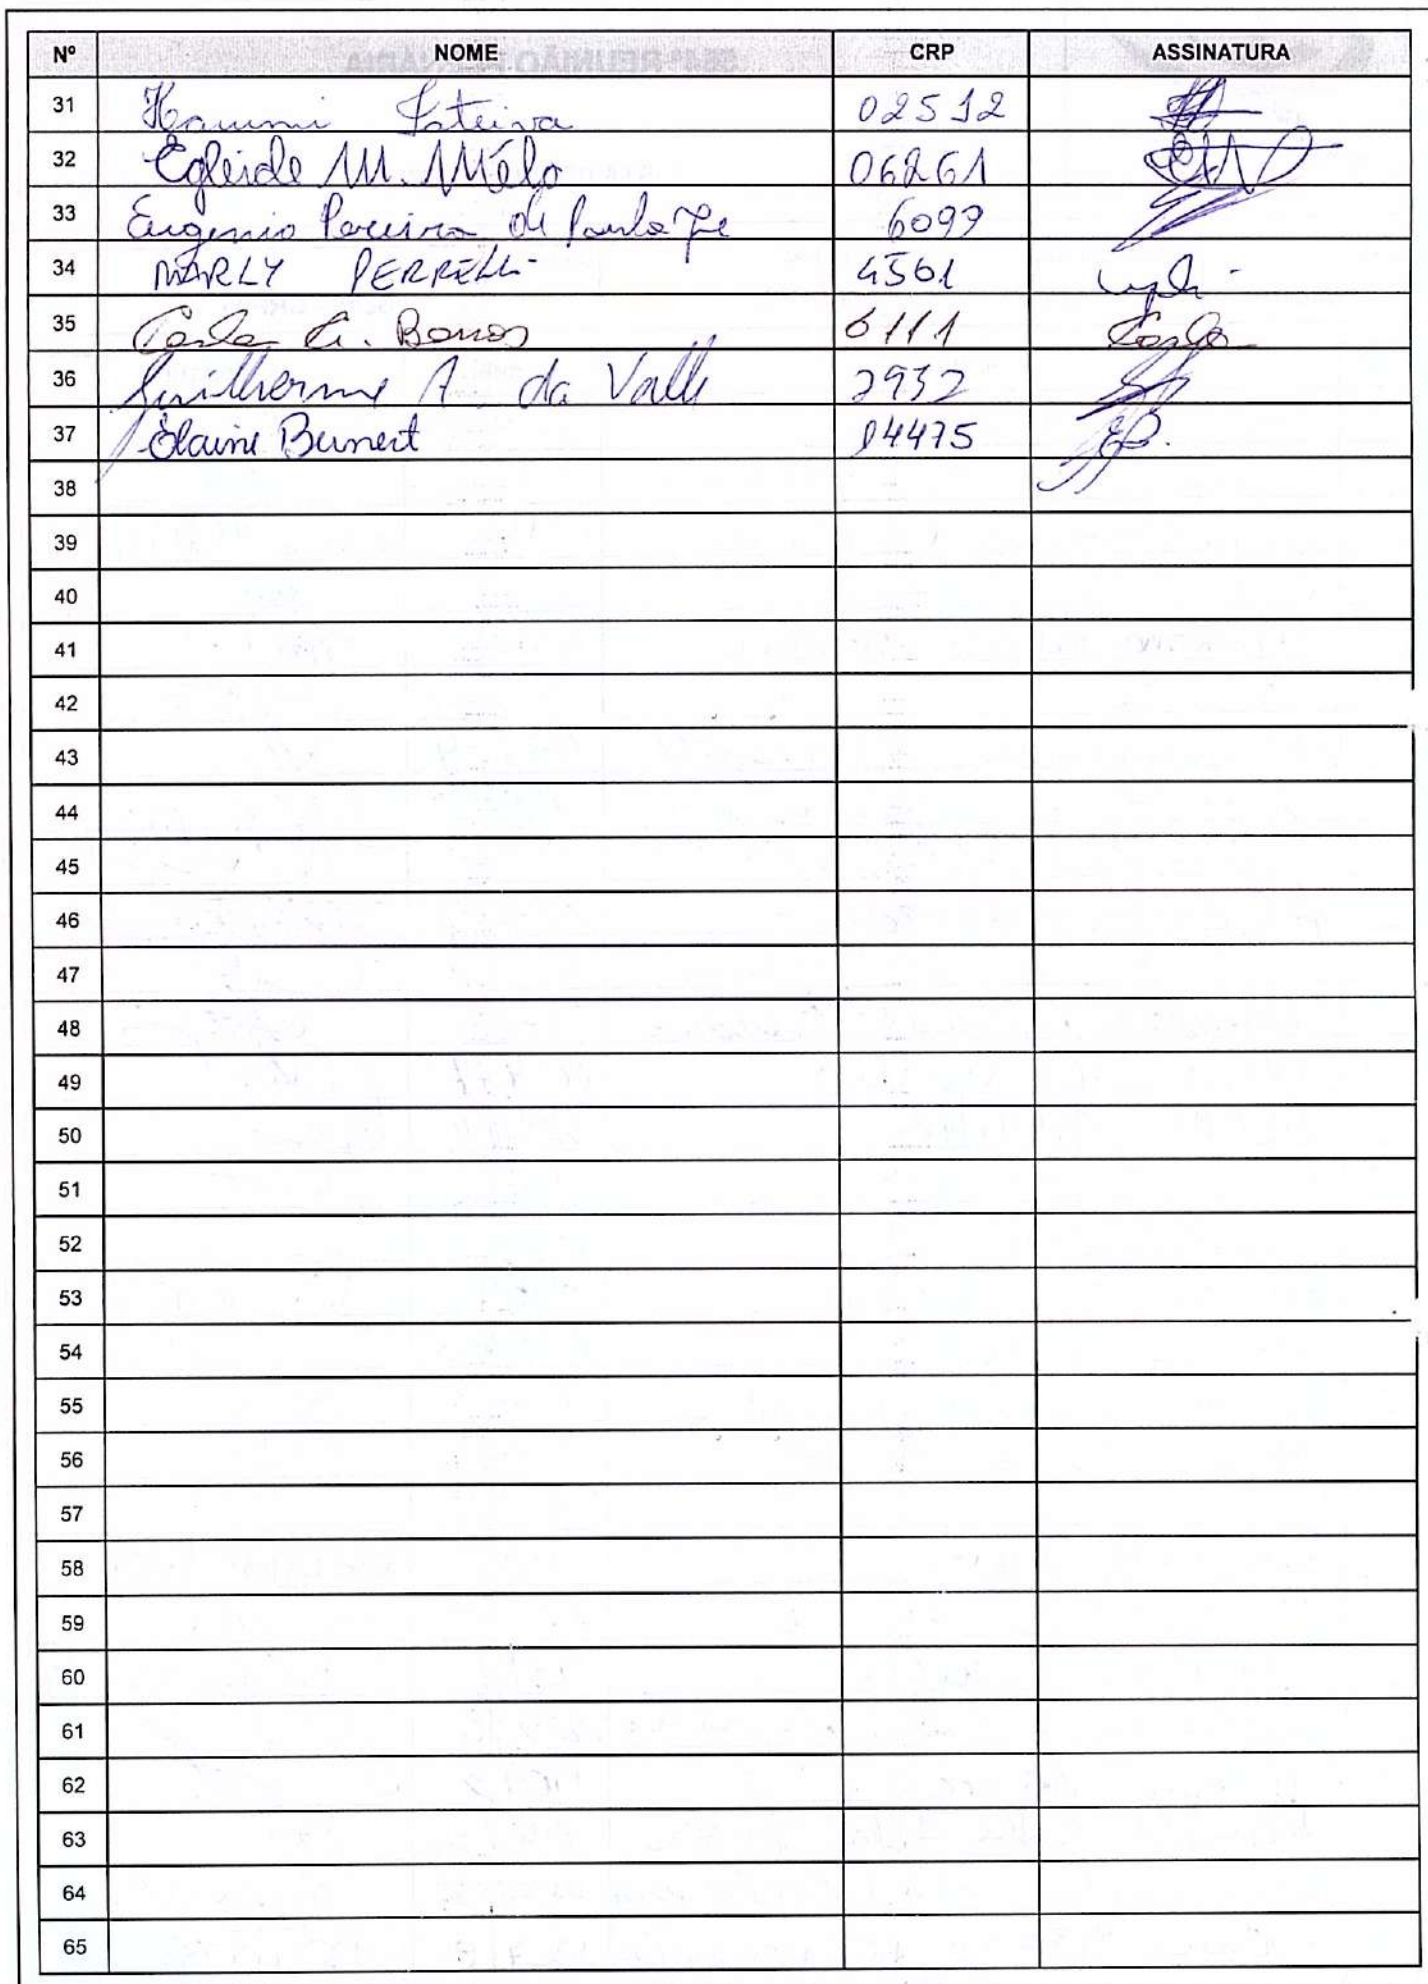 Nº NOME CRP ASSINATURA
31 02512
32 Egleide M. Mélo 06261
33 Eugenio Pereira de Paula Jr 6099
34 MARLY PERRELLI 4561
35 Carla C. Barros 6111 Carla
36 Guilherme A. da Valle 2932
37 Elaine Bernert 04475 EB.
38
39
40
41
42
43
44
45
46
47
48
49
50
51
52
53
54
55
56
57
58
59
60
61
62
63
64
65